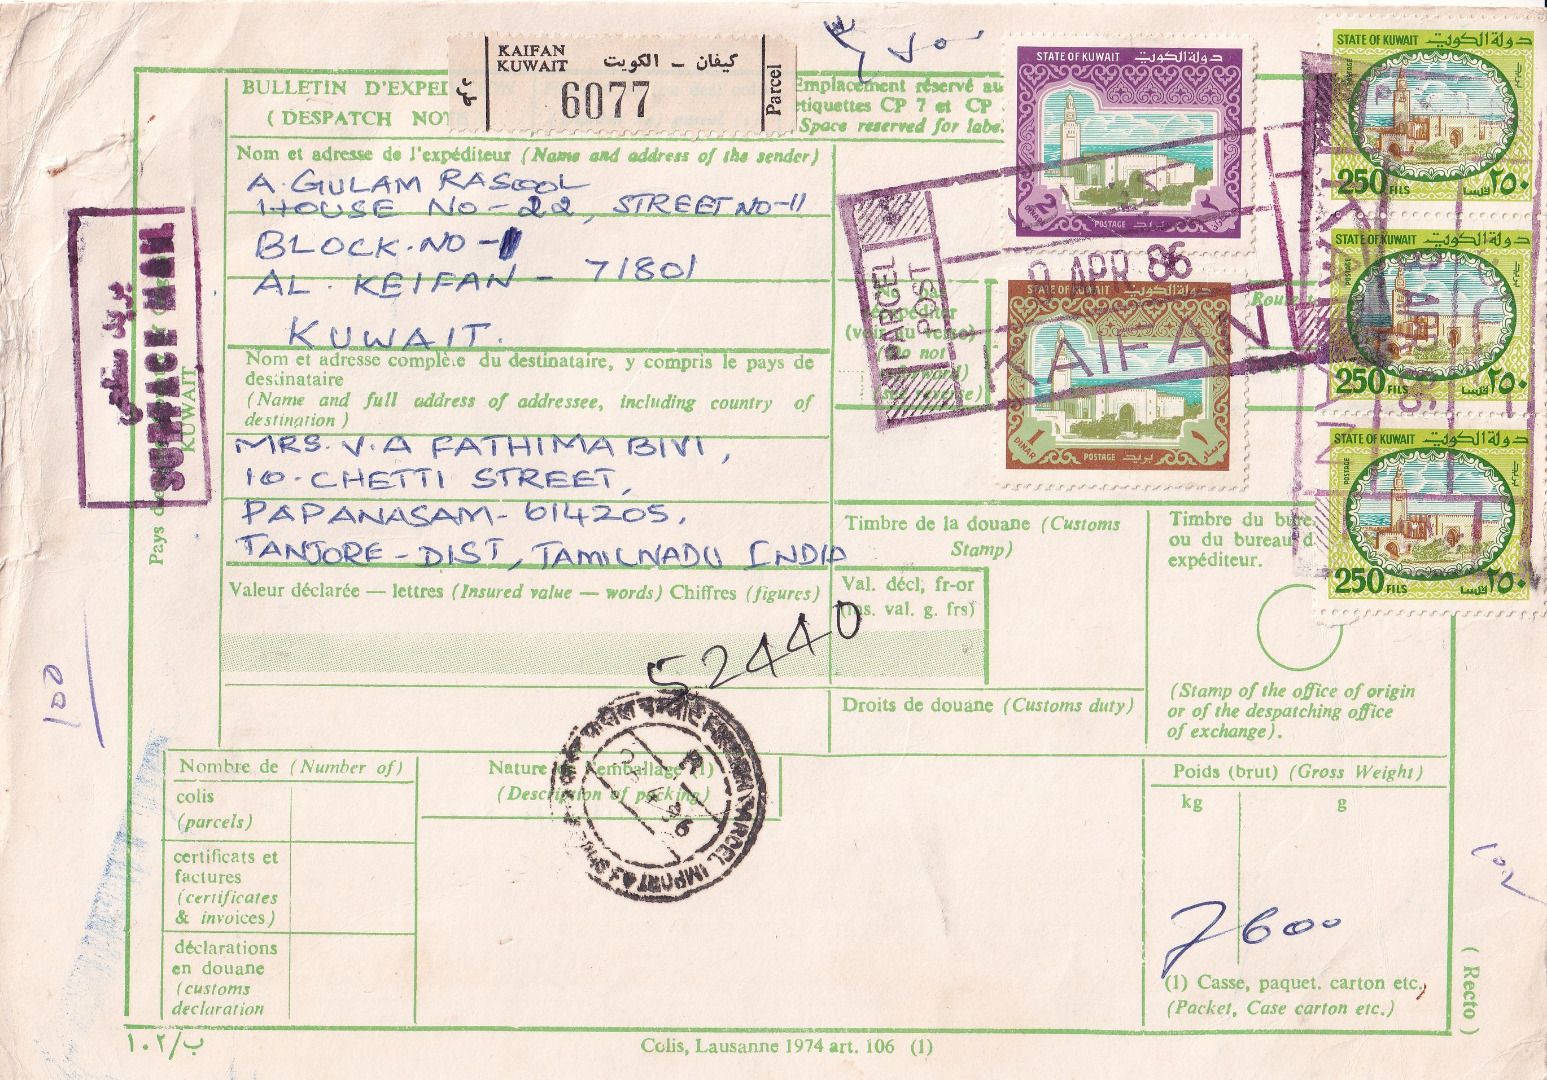 KAIFAN
KUWAIT
كيفان - الكويت
6077
Parcel
BULLETIN D'EXPEDI
(DESPATCH NOT
Emplacement réservé au
etiquettes CP 7 et CP
Space reserved for labe
Nom et adresse de l'expéditeur (Name and address of the sender)
A. GULAM RASOOL
HOUSE NO-22, STREET NO-11
BLOCK. NO-1
AL. KEIFAN - 71801
KUWAIT.
Nom et adresse complète du destinataire, y compris le pays de
destinataire
(Name and full address of addressee, including country of
destination)
MRS. V. A FATHIMA BIVI,
10. CHETTI STREET,
PAPANASAM-614205,
TANJORE-DIST, TAMILNADU INDIA
Valeur déclarée — lettres (Insured value — words) Chiffres (figures)
SURFACE MAIL
KUWAIT
STATE OF KUWAIT دولة الكويت
2 DINARS
POSTAGE بريد
STATE OF KUWAIT دولة الكويت
1 DINAR ١ دينار
POSTAGE بريد
STATE OF KUWAIT دولة الكويت
POSTAGE
250 FILS ٢٥٠ فلسا
STATE OF KUWAIT دولة الكويت
POSTAGE
250 FILS ٢٥٠ فلسا
STATE OF KUWAIT دولة الكويت
POSTAGE
250 FILS ٢٥٠ فلسا
PARCEL
POST
APR 86
KAIFAN
Timbre de la douane (Customs
Stamp)
Timbre du bure
ou du bureau d
expéditeur.
Val. décl, fr-or
(Ins. val. g. frs)
52440
(Stamp of the office of origin
or of the despatching office
of exchange).
Droits de douane (Customs duty)
100
PARCEL IMPORT
Nombre de (Number of)
colis
(parcels)
certificats et
factures
(certificates
& invoices)
déclarations
en douane
(customs
declaration
Nature de l'emballage (1)
(Description of packing)
Poids (brut) (Gross Weight)
kg g
7600
(1) Casse, paquet. carton etc.,
(Packet, Case carton etc.)
(Recto)
١٠٢/ب
Colis, Lausanne 1974 art. 106 (1)